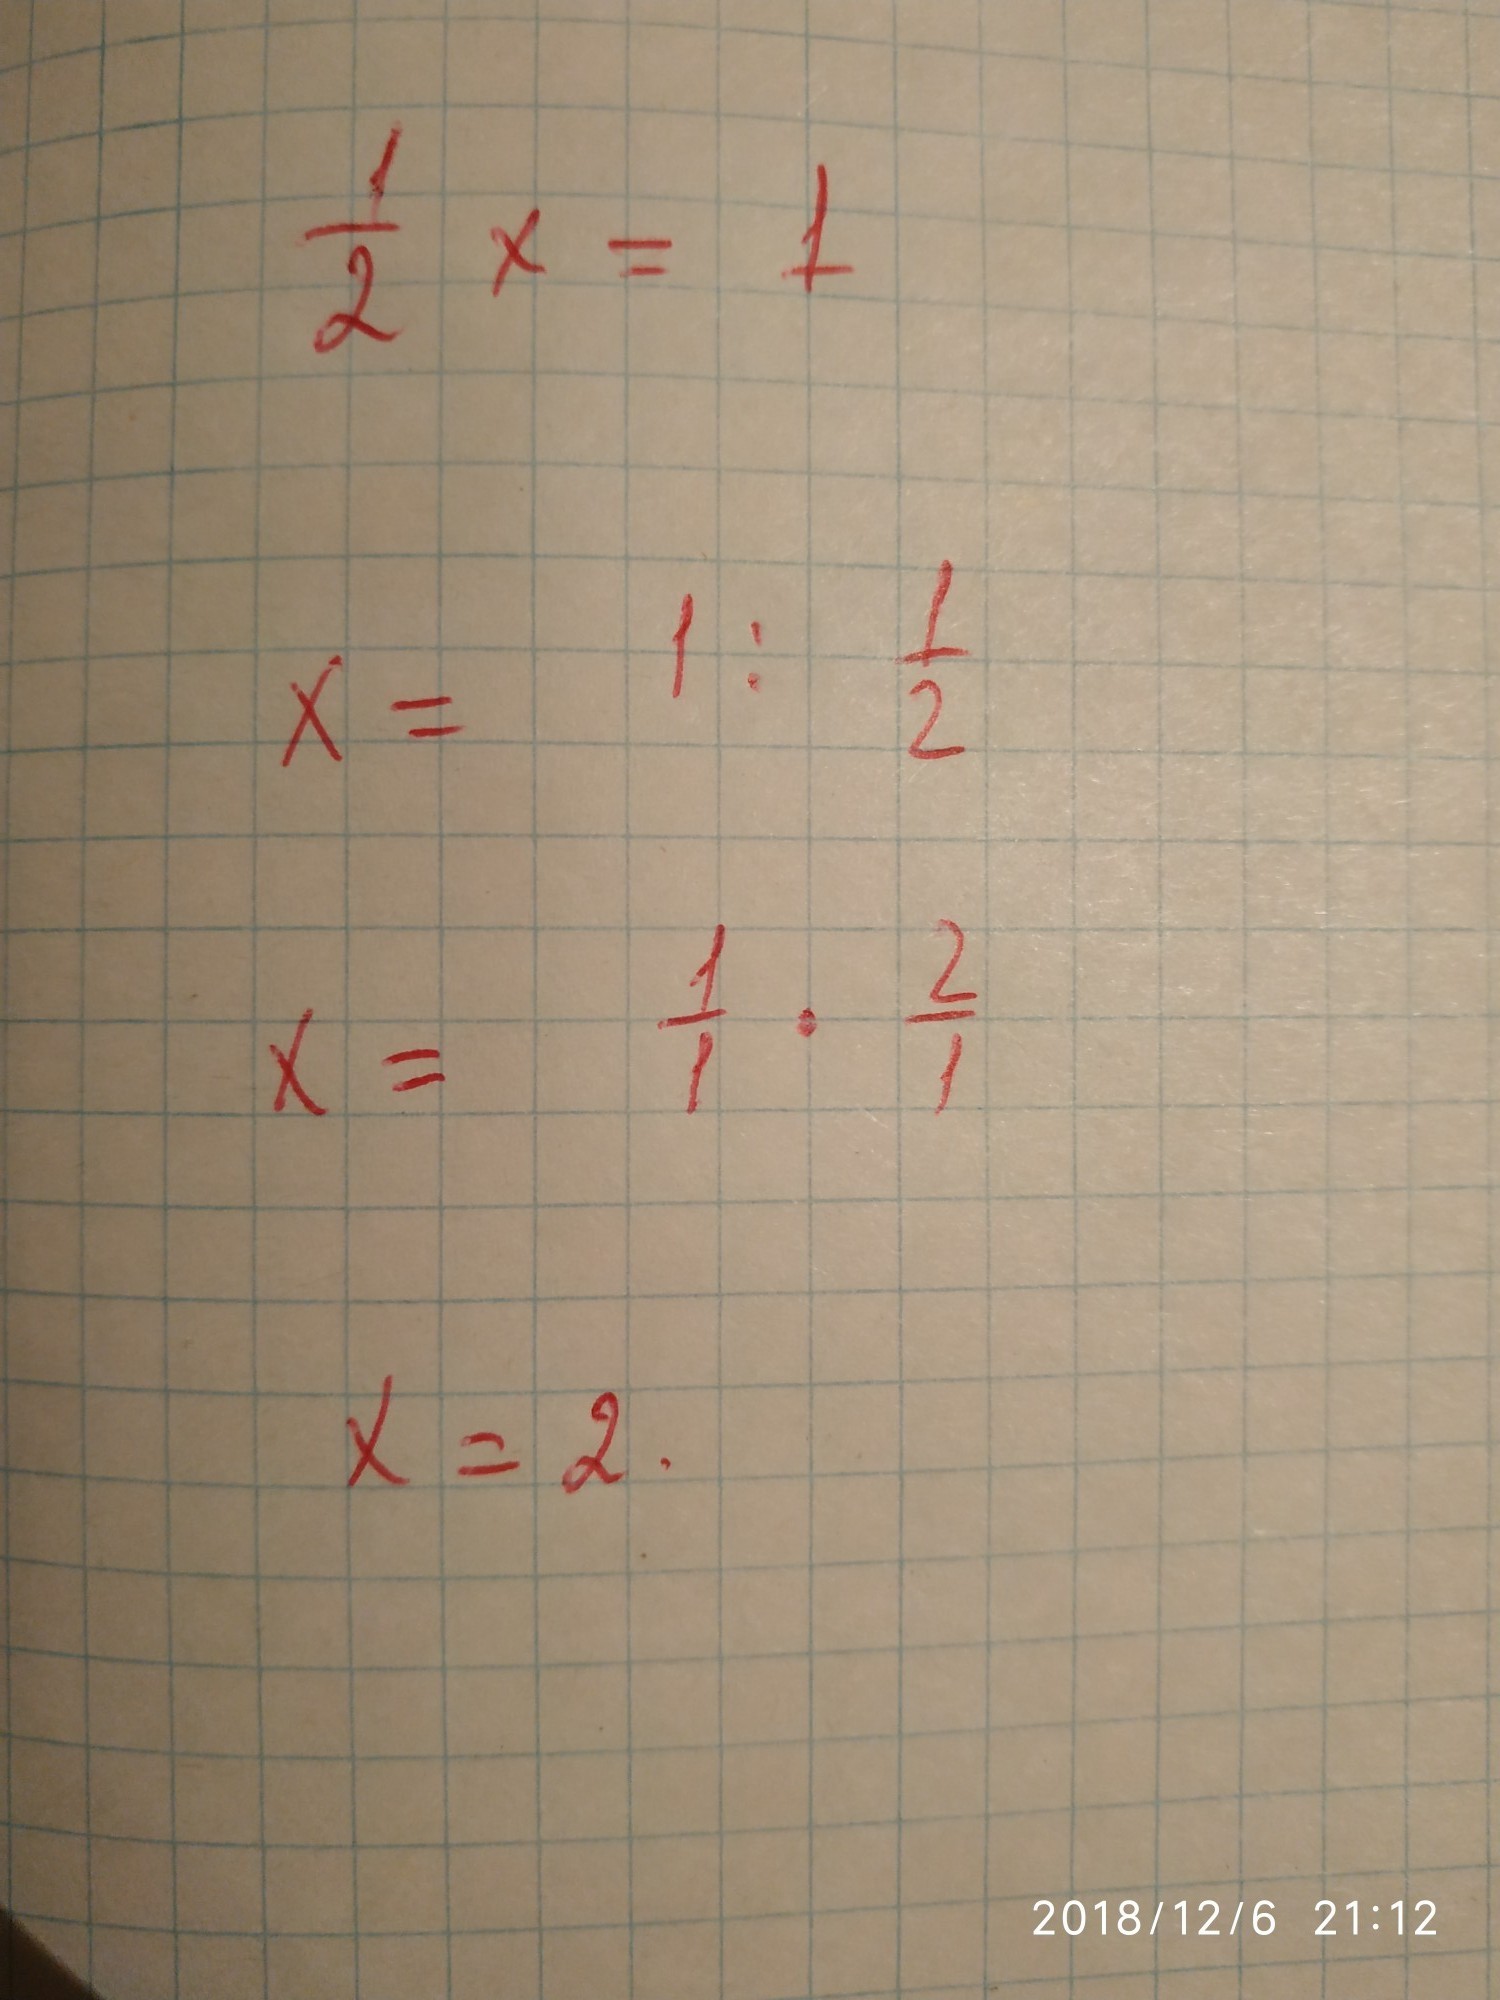 1/2 x = 1
x = 1 : 1/2
x = 1/1 · 2/1
x = 2.
2018/12/6 21:12